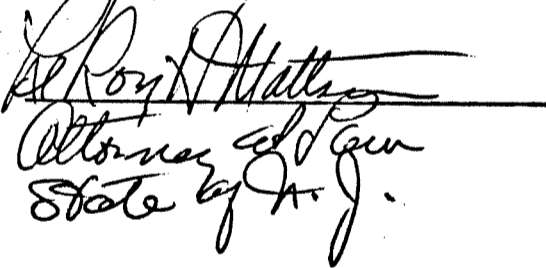 LeRoy H Mattson
Attorney at Law
State of N. J.